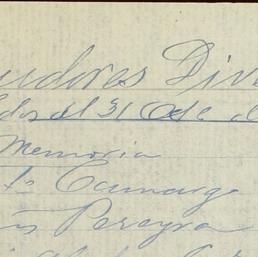 udores Div
dos al 31 Oct. d
Memoria
to Camargo
is Pereyra